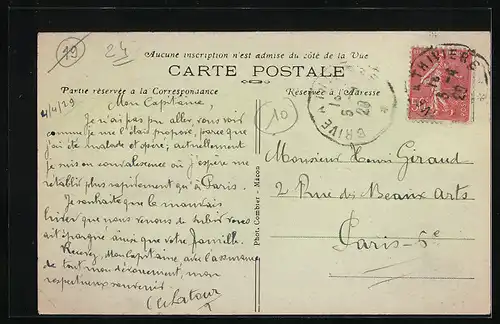 19
24
Aucune inscription n'est admise du côté de la Vue
CARTE POSTALE
Partie réservée a la Correspondance
Réservée à l'Adresse
4/4/29
Mon Capitaine,
Je n'ai pas pu aller vous voir
comme je me l'étais proposé, parce que
j'ai été malade et opéré, actuellement
je suis en convalescence où j'espère me
rétablir plus rapidement qu'à Paris.
Je souhaite que le mauvais
hiver que nous venons de subir vous
ait épargné ainsi que votre famille.
Recevez, Mon Capitaine, avec l'assurance
de tout mon dévouement, mon
respectueux souvenir
Latour
Phot. Combier - Macon
10
THIVIERS
BRIVE
Monsieur Henri Géraud
2 Rue des Beaux Arts
Paris-6e